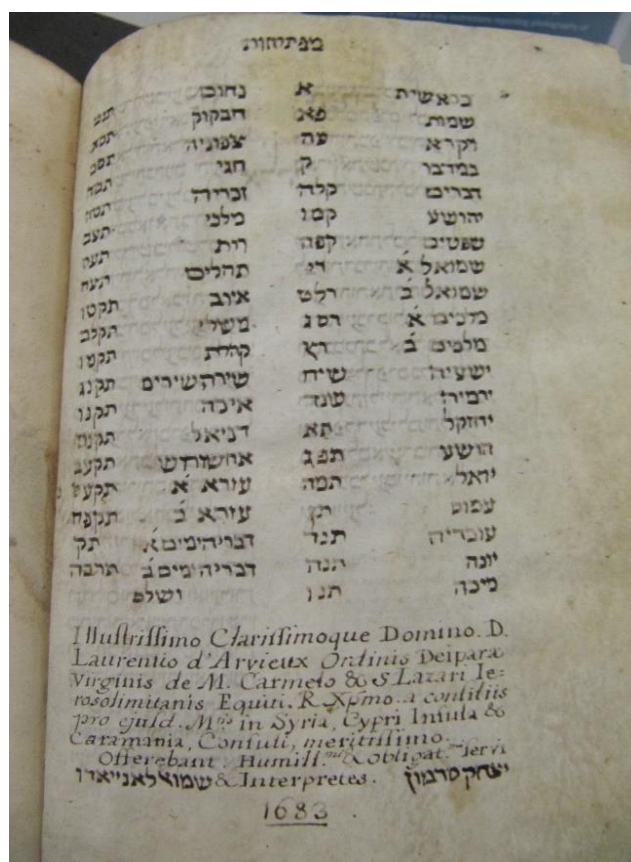 מפתיחות
בראשית א נחום
שמות חבקוק תסא
ויקרא פה צפוניה תסב
במדבר ק חגי
דברים קלה זכריה
יהושע קמו מלכי תעב
שפטים קפה רות תעה
שמואל א רי תהלים תעח
שמואל ב רלט איוב תקטו
מלכים א רסג משלי תקלב
מלכים ב רץ קהלת תקמו
ישעיה שיח שירהשירים תקנג
ירמיה שנד איכה תקנו
יחזקל תא דניאל תקנח
הושע תפג אחשורוש תקעב
יואל תמה עזרא א תקעט
עמוס עזרא ב תקפח
עובדיה תנד דבריהימים א תק
יונה תנה דבריהימים ב תרבה
מיכה תנו ושלם
Illustrissimo Clarissimoque Domino. D.
Laurentio d'Arvieux Ordinis Deiparæ
Virginis de M. Carmelo & S. Lazari Ie=
rosolimitanis Equiti. R. Xpmo. a consiliis
pro ejusd. Mtis in Syria, Cypri Insula &
Caramania, Consuli, meritissimo.
Offerebant. Humill.mi & obligat.mi servi
יצחק סרמון & שמואל לאנייאדו Interpretes.
1683